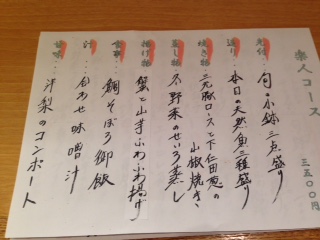 楽人コース 三五〇〇円
先付…旬の小鉢三点盛り
造り…本日の天然魚三種盛り
焼き物…三元豚ロースと下仁田葱の
山椒焼き
蒸し物…冬野菜のせいろ蒸し
揚げ物…蟹と山芋ふわふわ揚げ
食事…鯛そぼろ御飯
汁…合わせ味噌汁
甘味…洋梨のコンポート